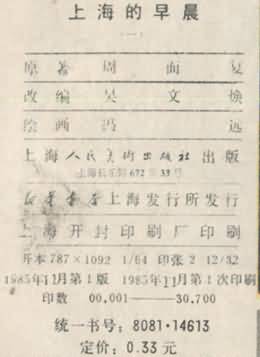 上海的早晨
(一)
原著 周而复
改编 吴文焕
绘画 冯远
上海人民美术出版社出版
上海长乐路672弄33号
新华书店上海发行所发行
上海开封印刷厂印刷
开本 787×1092 1/64 印张 2 12/32
1985年11月第1版 1985年11月第1次印刷
印数 00,001——30,700
统一书号：8081·14613
定价：0.33元